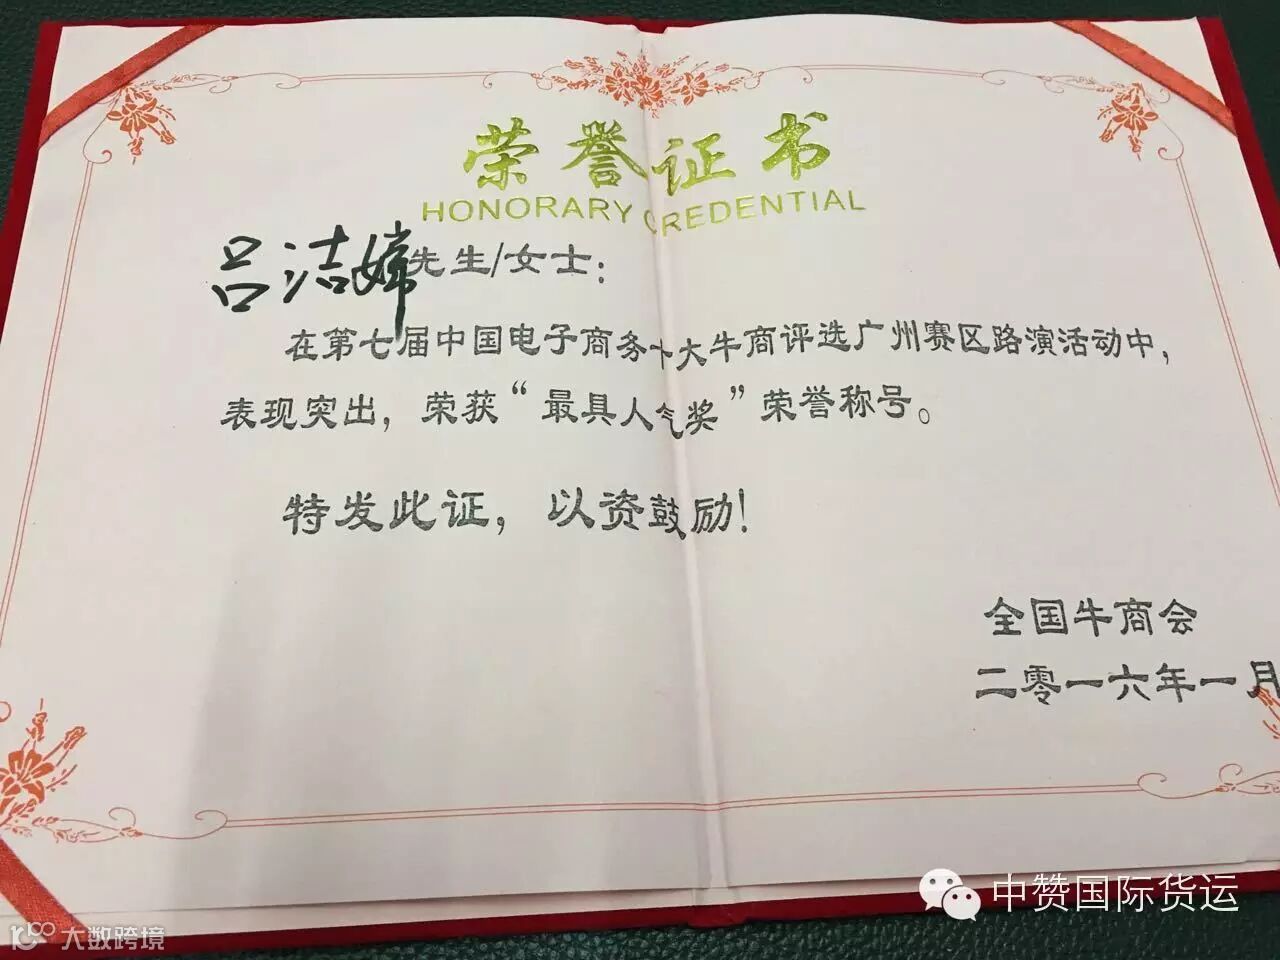 荣誉证书
HONORARY CREDENTIAL
吕洁嫦先生/女士：
在第七届中国电子商务十大牛商评选广州赛区路演活动中，
表现突出，荣获“最具人气奖”荣誉称号。
特发此证，以资鼓励！
全国牛商会
二零一六年一月
中赞国际货运
大数跨境